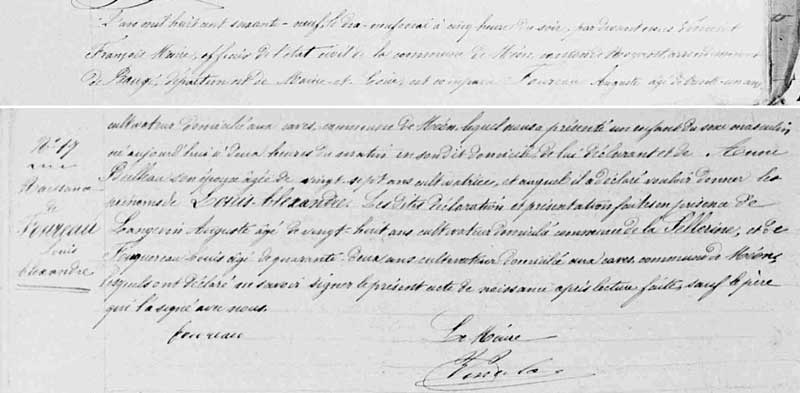 L'an mil huit cent soixante-neuf, le dix- à cinq heures du soir, par devant nous
François Maire, officier de l'état civil de la commune de Méon, canton de arrondissement
de Baugé, département de Maine-et-Loire, est comparu Foureau Auguste âgé de trente-un ans,
cultivateur domicilié aux caves, commune de Méon, lequel nous a présenté un enfant du sexe masculin
né aujourd'hui à deux heures du matin en son dit domicile de lui déclarant et de Anne
son épouse âgée de vingt-sept ans cultivatrice, et auquel il a déclaré vouloir donner les
prénoms de Louis Alexandre. Les dites déclaration et présentation faites en présence de
Langevin Auguste âgé de vingt-huit ans cultivateur domicilié commune de la Pellerine, et de
Fouquereau Louis âgé de quarante-deux ans cultivateur domicilié aux caves, commune de Méon,
lesquels ont déclaré ne savoir signer le présent acte de naissance après lecture faite, sauf le père
qui l'a signé avec nous.
N° 17
Naissance
de
Foureau
Louis
Alexandre
foureau
Le Maire